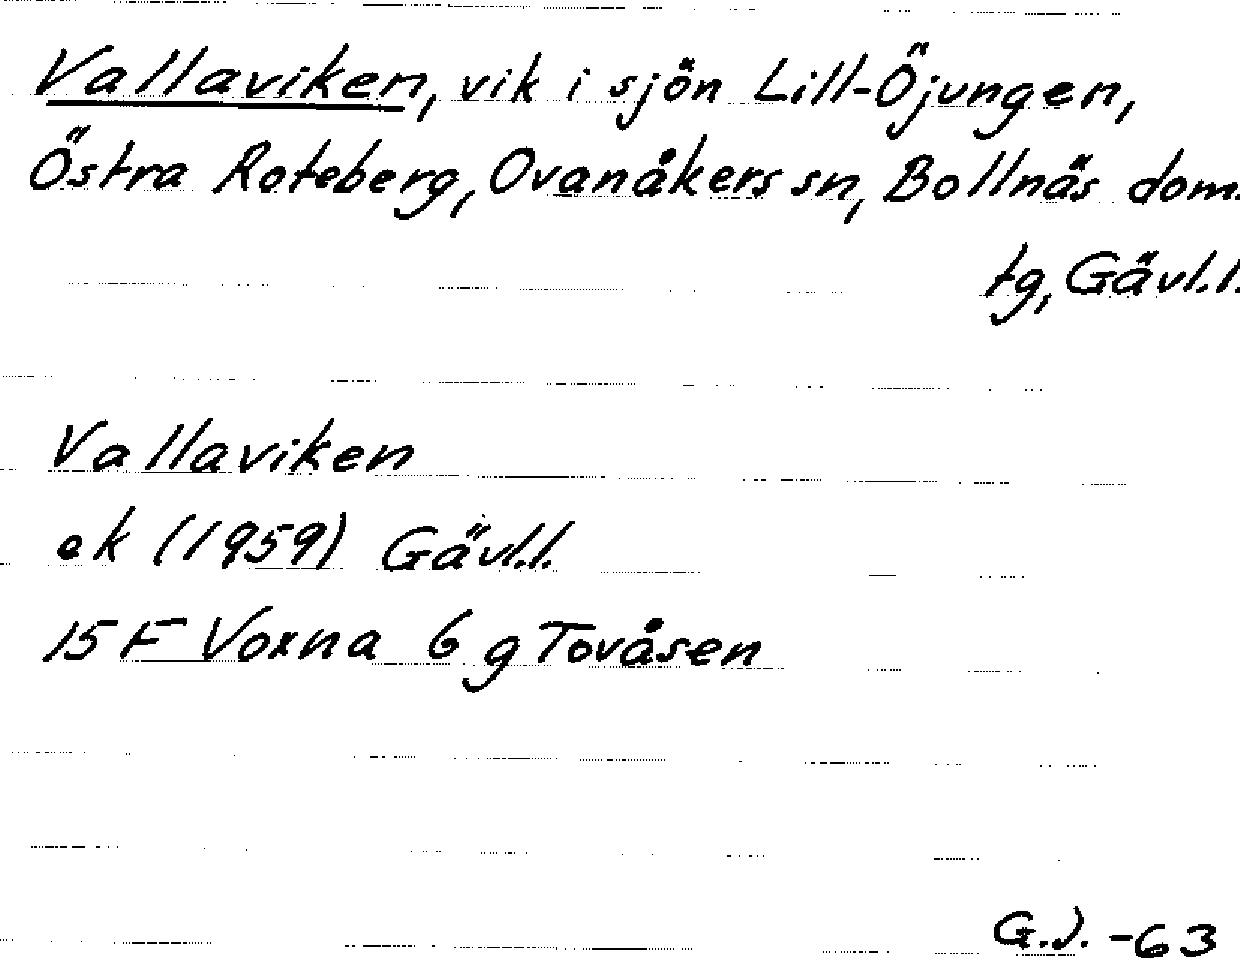 Vallaviken, vik i sjön Lill-Öjungen,
Östra Roteberg, Ovanåkers sn, Bollnäs dom.
tg, Gävl.l.
Vallaviken
ek (1959) Gävl.l.
15 F Voxna 6 g Tovåsen
G.J. -63